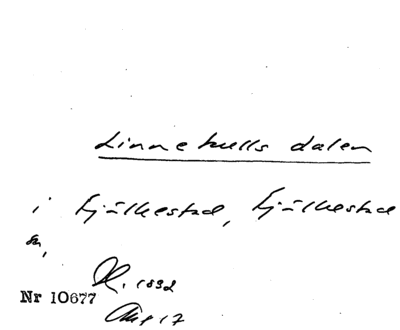 Linnekulls dalen
i Fjälkestad, Fjälkestad
sn,
R. 1892
Nr 10677
Aug 17